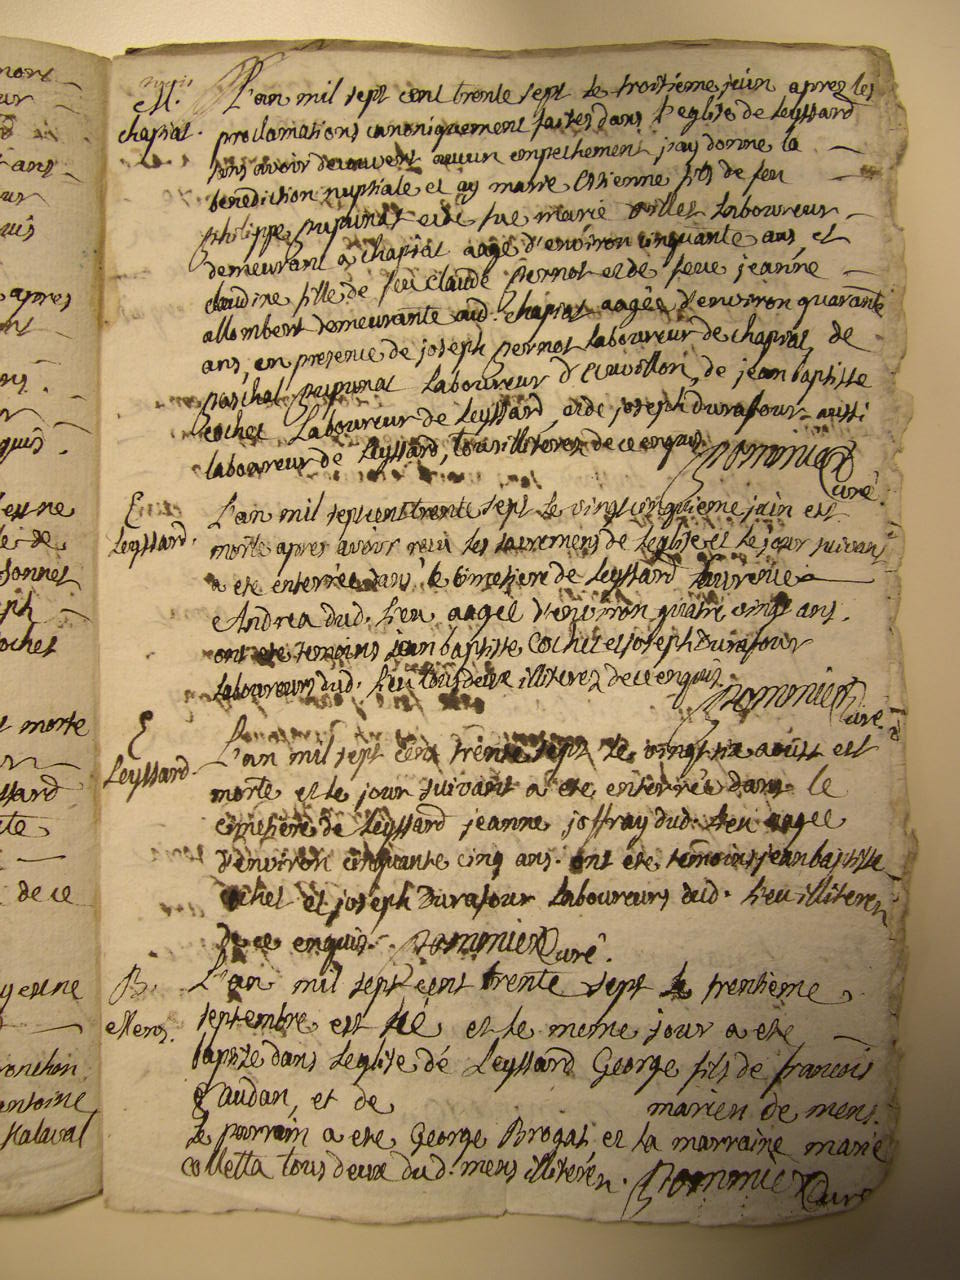 M.
chapiat.
L'an mil sept cent trente sept le troisième juin apres les
proclamations canoniquement faites dans l'eglise de Leyssard
sans avoir decouvert aucun empechement j'ay donné la
benediction nuptiale et ay marié Estienne fils de feu
philippe et de fue marie laboureur
demeurant a chapiat aagé d'environ cinquante ans, et
claudine fille de feu claude pernot et de feue jeanne
allombert demeurante aud. chapiat aagée d'environ quarante
ans, en presence de joseph pernot laboureur de chapiat, de
paschal laboureur de jean baptiste
cochet Laboureur de Leyssard, et de joseph Durafour aussi
laboureur de Leyssard, tous illiterez de ce enquis.
pommier Curé
E
Leyssard.
L'an mil sept cent trente sept le vingt cinquieme juin est
morte apres avoir reçu les sacremens de l'eglise et le jour suivant
a eté enterrée dans le cimetiere de Leyssard Laurence
Andrea dud. lieu aagée d'environ quatre vingt ans.
ont eté temoins jean baptiste Cochet et joseph Durafour
laboureurs dud. lieu tous deux illiterez de ce enquis.
pommier Curé
E
Leyssard.
L'an mil sept cent trente sept le vingt six aoust est
morte et le jour suivant a eté enterrée dans le
cimetiere de Leyssard jeanne joffray dud. lieu aagée
d'environ cinquante cinq ans. ont eté temoins jean baptiste
Cochet et joseph Durafour laboureurs dud. lieu illiterez
de ce enquis. pommier Curé.
B.
Mens.
L'an mil sept cent trente sept le trentième
septembre est né et le meme jour a eté
baptisé dans l'eglise de Leyssard George fils de francois
et de mariez de mens.
Le parrain a eté George Brogat et la marraine marie
colletta tous deux dud. mens illiterez. pommier Curé